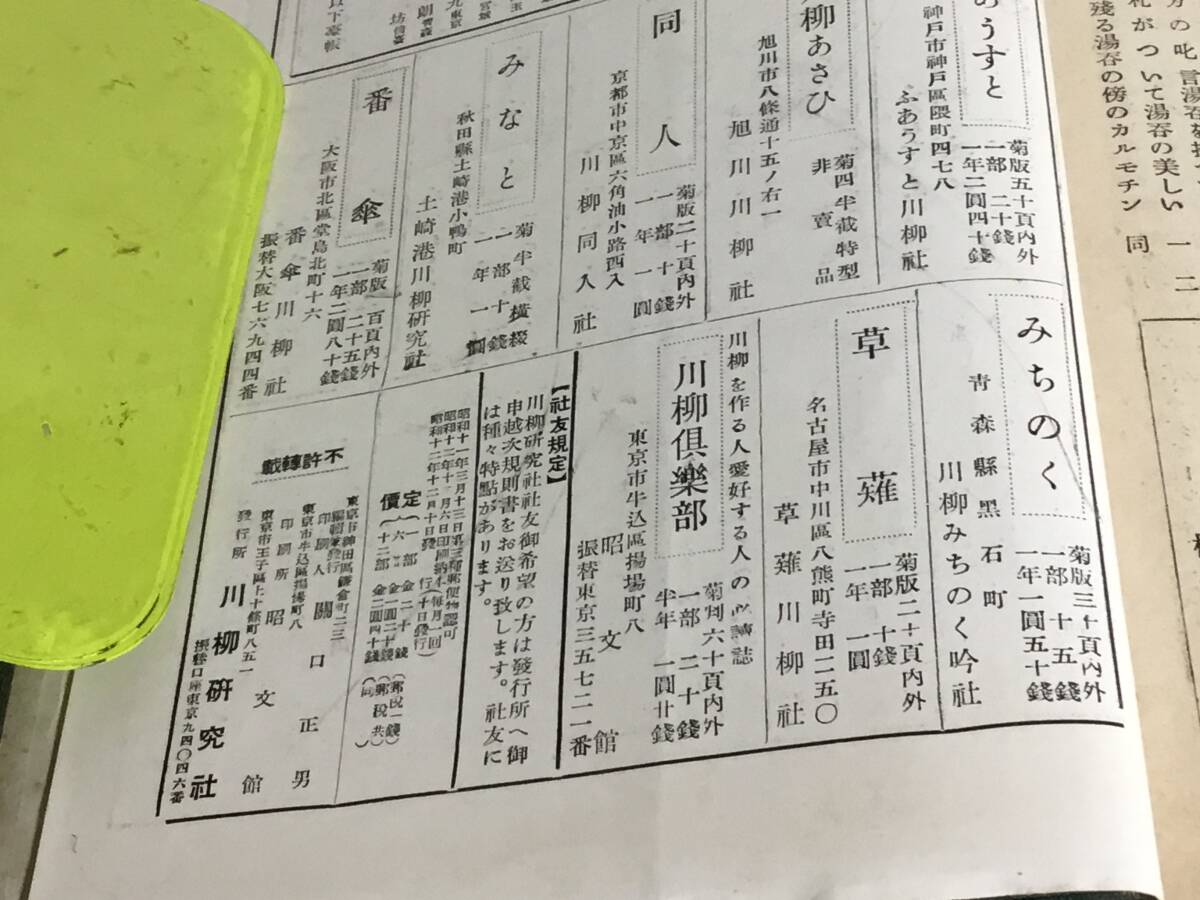 言湯吞を
札がついて湯吞の美しい 一二
殘る湯吞の傍のカルモチン 同
あうすと
菊版五十頁內外
一部 二十錢
一年二圓四十錢
神戶市神戶區隈町四七八
ふあうすと川柳社
柳あさひ
菊四半截特型
非賣品
旭川市八條通十五ノ右一
旭川川柳社
同人
菊版二十頁內外
一部十錢
一年一圓
京都市中京區六角油小路西入
川柳同人社
みなと
菊半截橫綴
一部十錢
一年一圓
秋田縣土崎港小鴨町
土崎港川柳硏究社
番傘
菊版百頁內外
一部二十五錢
一年二圓八十錢
大阪市北區堂島北町十六
番傘川柳社
振替大阪七六九四四番
みちのく
菊版三十頁內外
一部十五錢
一年一圓五十錢
靑森縣黑石町
川柳みちのく吟社
草薙
菊版二十頁內外
一部十錢
一年一圓
名古屋市中川區八熊町寺田二五〇
草薙川柳社
川柳を作る人愛好する人の必讀誌
川柳俱樂部
菊判六十頁內外
一部二十錢
半年一圓廿錢
東京市牛込區揚場町八
昭文館
振替東京三五七二一番
【社友規定】
川柳硏究社社友御希望の方は發行所へ御
申越次規則書をお送り致します。社友に
は種々特點があります。
昭和十一年三月十三日第三種郵便物認可
昭和十二年十二月六日印刷納本(每月一回
昭和十二年十二月十日發 行(十日發行)
定價
一部 金二十錢(郵稅一錢)
六〃 金一圓二十錢(郵稅共)
十二部 金二圓四十錢(同)
不許轉載
東京市神田區鎌倉町二三
編輯兼發行
印刷人 關口正男
東京市牛込區揚場町八
印刷所 昭文館
東京市王子區上十條町八五一
發行所 川柳硏究社
振替口座東京九四〇四六番